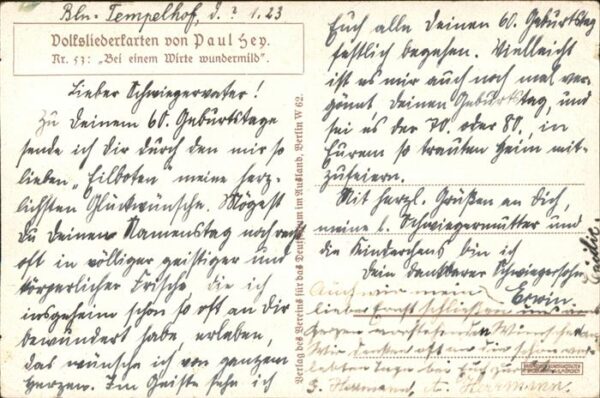 Bln-Tempelhof, d. 1.23
Volksliederkarten von Paul Hey.
Nr. 53: „Bei einem Wirte wundermild".
Lieber Schwiegervater!
Zu Deinem 60. Geburtstage
sende ich Dir durch den mir so
lieben „Eilboten" meine herz-
lichsten Glückwünsche. Mögest
Du Deinen Namenstag noch recht
oft in völliger geistiger und
körperlicher Frische die ich
insgeheim schon so oft an Dir
bewundert habe erleben,
das wünsche ich von ganzem
Herzen. Im Geiste sehe ich
Verlag des Vereins für das Deutschtum im Ausland, Berlin W 62.
Euch alle Deinen 60. Geburtstag
festlich begehen. Vielleicht
ist es mir auch noch mal ver-
gönnt Deinen Geburtstag, und
sei es der 70. oder 80., in
Eurem so trauten Heim mit-
zufeiern.
Mit herzl. Grüßen an Dich,
meine l. Schwiegermutter und
die Kinderchens bin ich
Dein dankbarer Schwiegersohn
Erwin
Auch wir mein
lieber Ernst schließen uns
Herzen Wünschen an.
Wir denken oft an die schönen
Tage bei Euch
Herrmann, A. Herrmann.